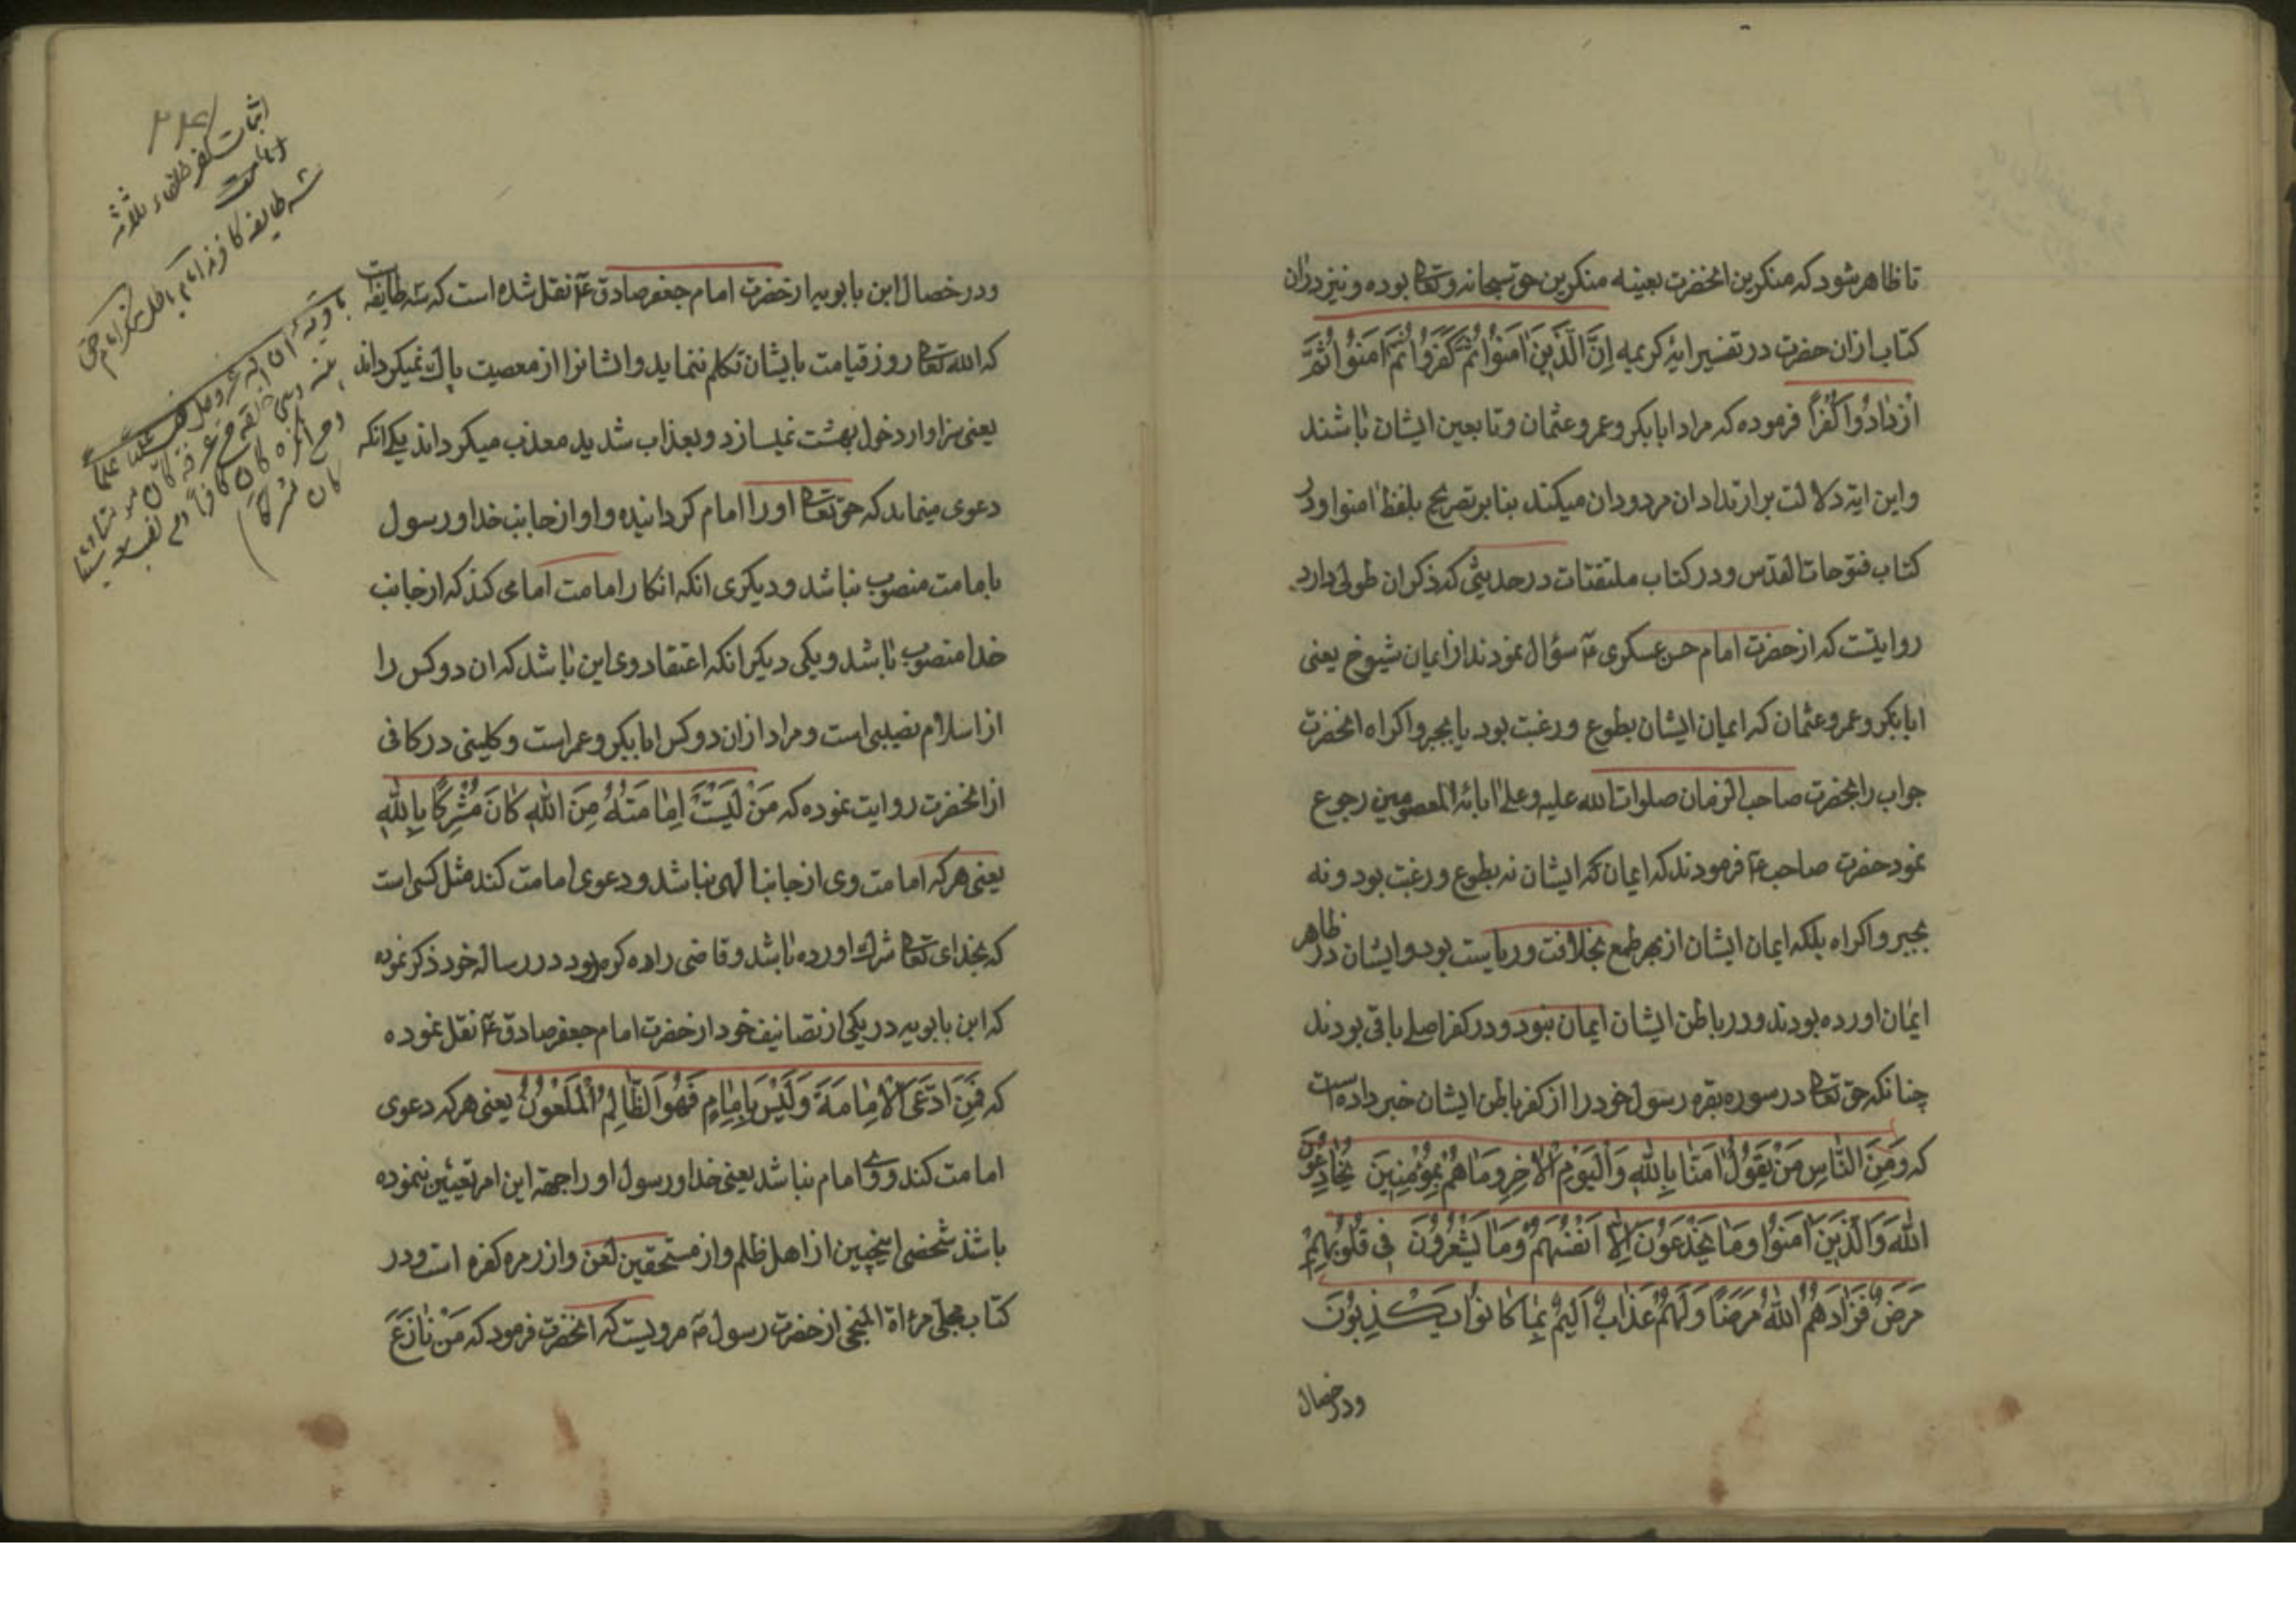 تا ظاهر شود که منکرین انحضرت بعینه منکرین حق سبحانه وتعا بوده و نیز دران
کتاب ازان حضرت در تفسیر ایهٔ کریمه اِنَّ الَّذینَ امَنوُا ثُمَّ کَفَرُوا ثُمَّ امَنوُا ثُمَّ
اَزْدادُوا کُفْراً فرموده که مراد ابابکر و عمر و عثمان و تابعین ایشان باشند
واین ایة دلالت بر ارتداد ان مردودان میکند بنابر تصریح بلفظ امنوا ودر
کتاب فتوحات القدس ودر کتاب ملتقتات در حدیثی که ذکر ان طولی دارد
روایتست که از حضرت امام حسن عسکری ع سؤال نمودند از ایمان شیوخ یعنی
ابابکر وعمر وعثمان که ایمان ایشان بطوع ورغبت بود یا بجبر واکراه انحضرت
جواب را بحضرت صاحب الزمان صلوات الله علیه وعلی ابائه المعصومین رجوع
نمود حضرت صاحب ع فرمودند که ایمان که ایشان نه بطوع ورغبت بود ونه
بجبر واکراه بلکه ایمان ایشان از بهر طمع بخلافت وریاست بود وایشان در ظاهر
ایمان اورده بودند ودر باطن ایشان ایمان نبود ودر کفر اصلی باقی بودند
چنانکه حق تعا در سوره بقره رسول خود را از کفر باطن ایشان خبر داده است
که وَمِنَ النّاسِ مَنْ یَقوُلُ امَنّا بِاللهِ وَالْیَوْمِ الْاخِرِ وَما هُمْ بِمُؤْمِنینَ یُخادِعُونَ
اللهَ وَالَّذینَ امَنوُا وَما یَخْدَعوُنَ اِلّا اَنْفُسَهُمْ وَما یَشْعُرُونَ فی قُلُوبِهِمْ
مَرَضٌ فَزادَهُمُ اللهُ مَرَضًا وَلَهُمْ عَذابٌ اَلیمٌ بِما کانوُا یَکْذِبوُنَ
ودر خصال
ودر خصال ابن بابویه از حضرت امام جعفر صادق ع نقل شده است که سه طایفه است
که الله تعا روز قیامت بایشان تکلم ننماید وایشانرا از معصیت پاک نمیکرداند
یعنی سزاوار دخول بهشت نمیسازد وبعذاب شدید معذب میکرداند یکی انکه
دعوی مینماید که حق تعا او را امام کردانیده واو از جانب خدا ورسول
بامامت منصوب نباشد ودیکری انکه انکار امامت امامی کند که از جانب
خدا منصوب باشد ویکی دیکر انکه اعتقاد وی این باشد که ان دو کس را
از اسلام نصیبی است ومراد ازان دو کس ابابکر وعمر است وکلینی در کافی
از انحضرت روایت نموده که مَنْ لَیْسَتْ اِمامَتُهُ مِنَ اللهِ کانَ مُشْرِکًا بِاللهِ
یعنی هرکه امامت وی از جانب الهی نباشد ودعوی امامت کند مثل کسی است
که بخدای تعا شرک اورده باشد وقاضی زاده کرهرود در رساله خود ذکر نموده
که ابن بابویه در یکی از تصانیف خود از حضرت امام جعفر صادق ع نقل نموده
که فَمَنِ ادَّعَی الْاِمامَةَ وَلَیْسَ بِاِمامٍ فَهُوَ الظّالِمُ الْمَلْعُونُ یعنی هرکه دعوی
امامت کند ووی امام نباشد یعنی خدا ورسول او را جهة این امر تعیین ننموده
باشد شخصی اینچنین از اهل ظلم واز مستحقین لعن واز زمره کفره است ودر
کتاب مجلی مرءاة المنجی از حضرت رسول ص مرویست که انحضرت فرمود که مَنْ نازَعَ
اثبات کفر خلفاء ثلاثه